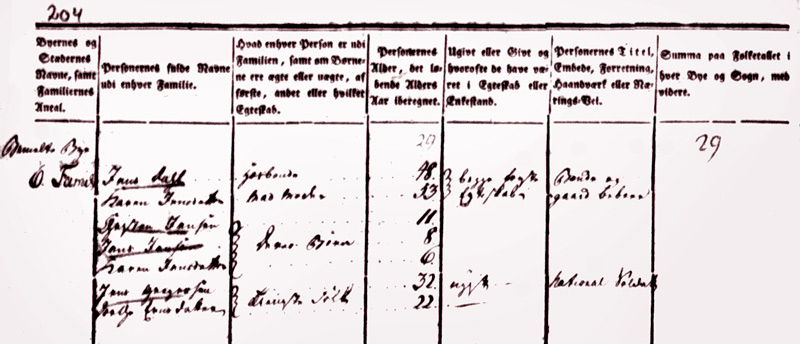 204
Byernes og Stædernes Navne, samt Familiernes Antal.
Personernes fulde Navne udi enhver Familie.
Hvad enhver Person er udi Familien, samt om Børnene ere ægte eller uægte, af første, andet eller hvilket Egteskab.
Personernes Alder, det løbende Alders Aar iberegnet.
Ugivt eller Givt og hvorofte de have været i Egteskab eller Enkestand.
Personernes Titel, Embede, Forretning, Haandværk eller Nærings-Vei.
Summa paa Folketallet i hver Bye og Sogn, med videre.
Bye 29 29
6. Jens Hosbonde 48 begge første Bonde og
Karen Jensdatter Mad Moder 33 Egteskab gaard beboer
Jensen 11
Jens Jensen deres Børn 8
Karen Jensdatter 6
Jens Gregersen 32 ugift National Soldat
Tieneste Folk 22